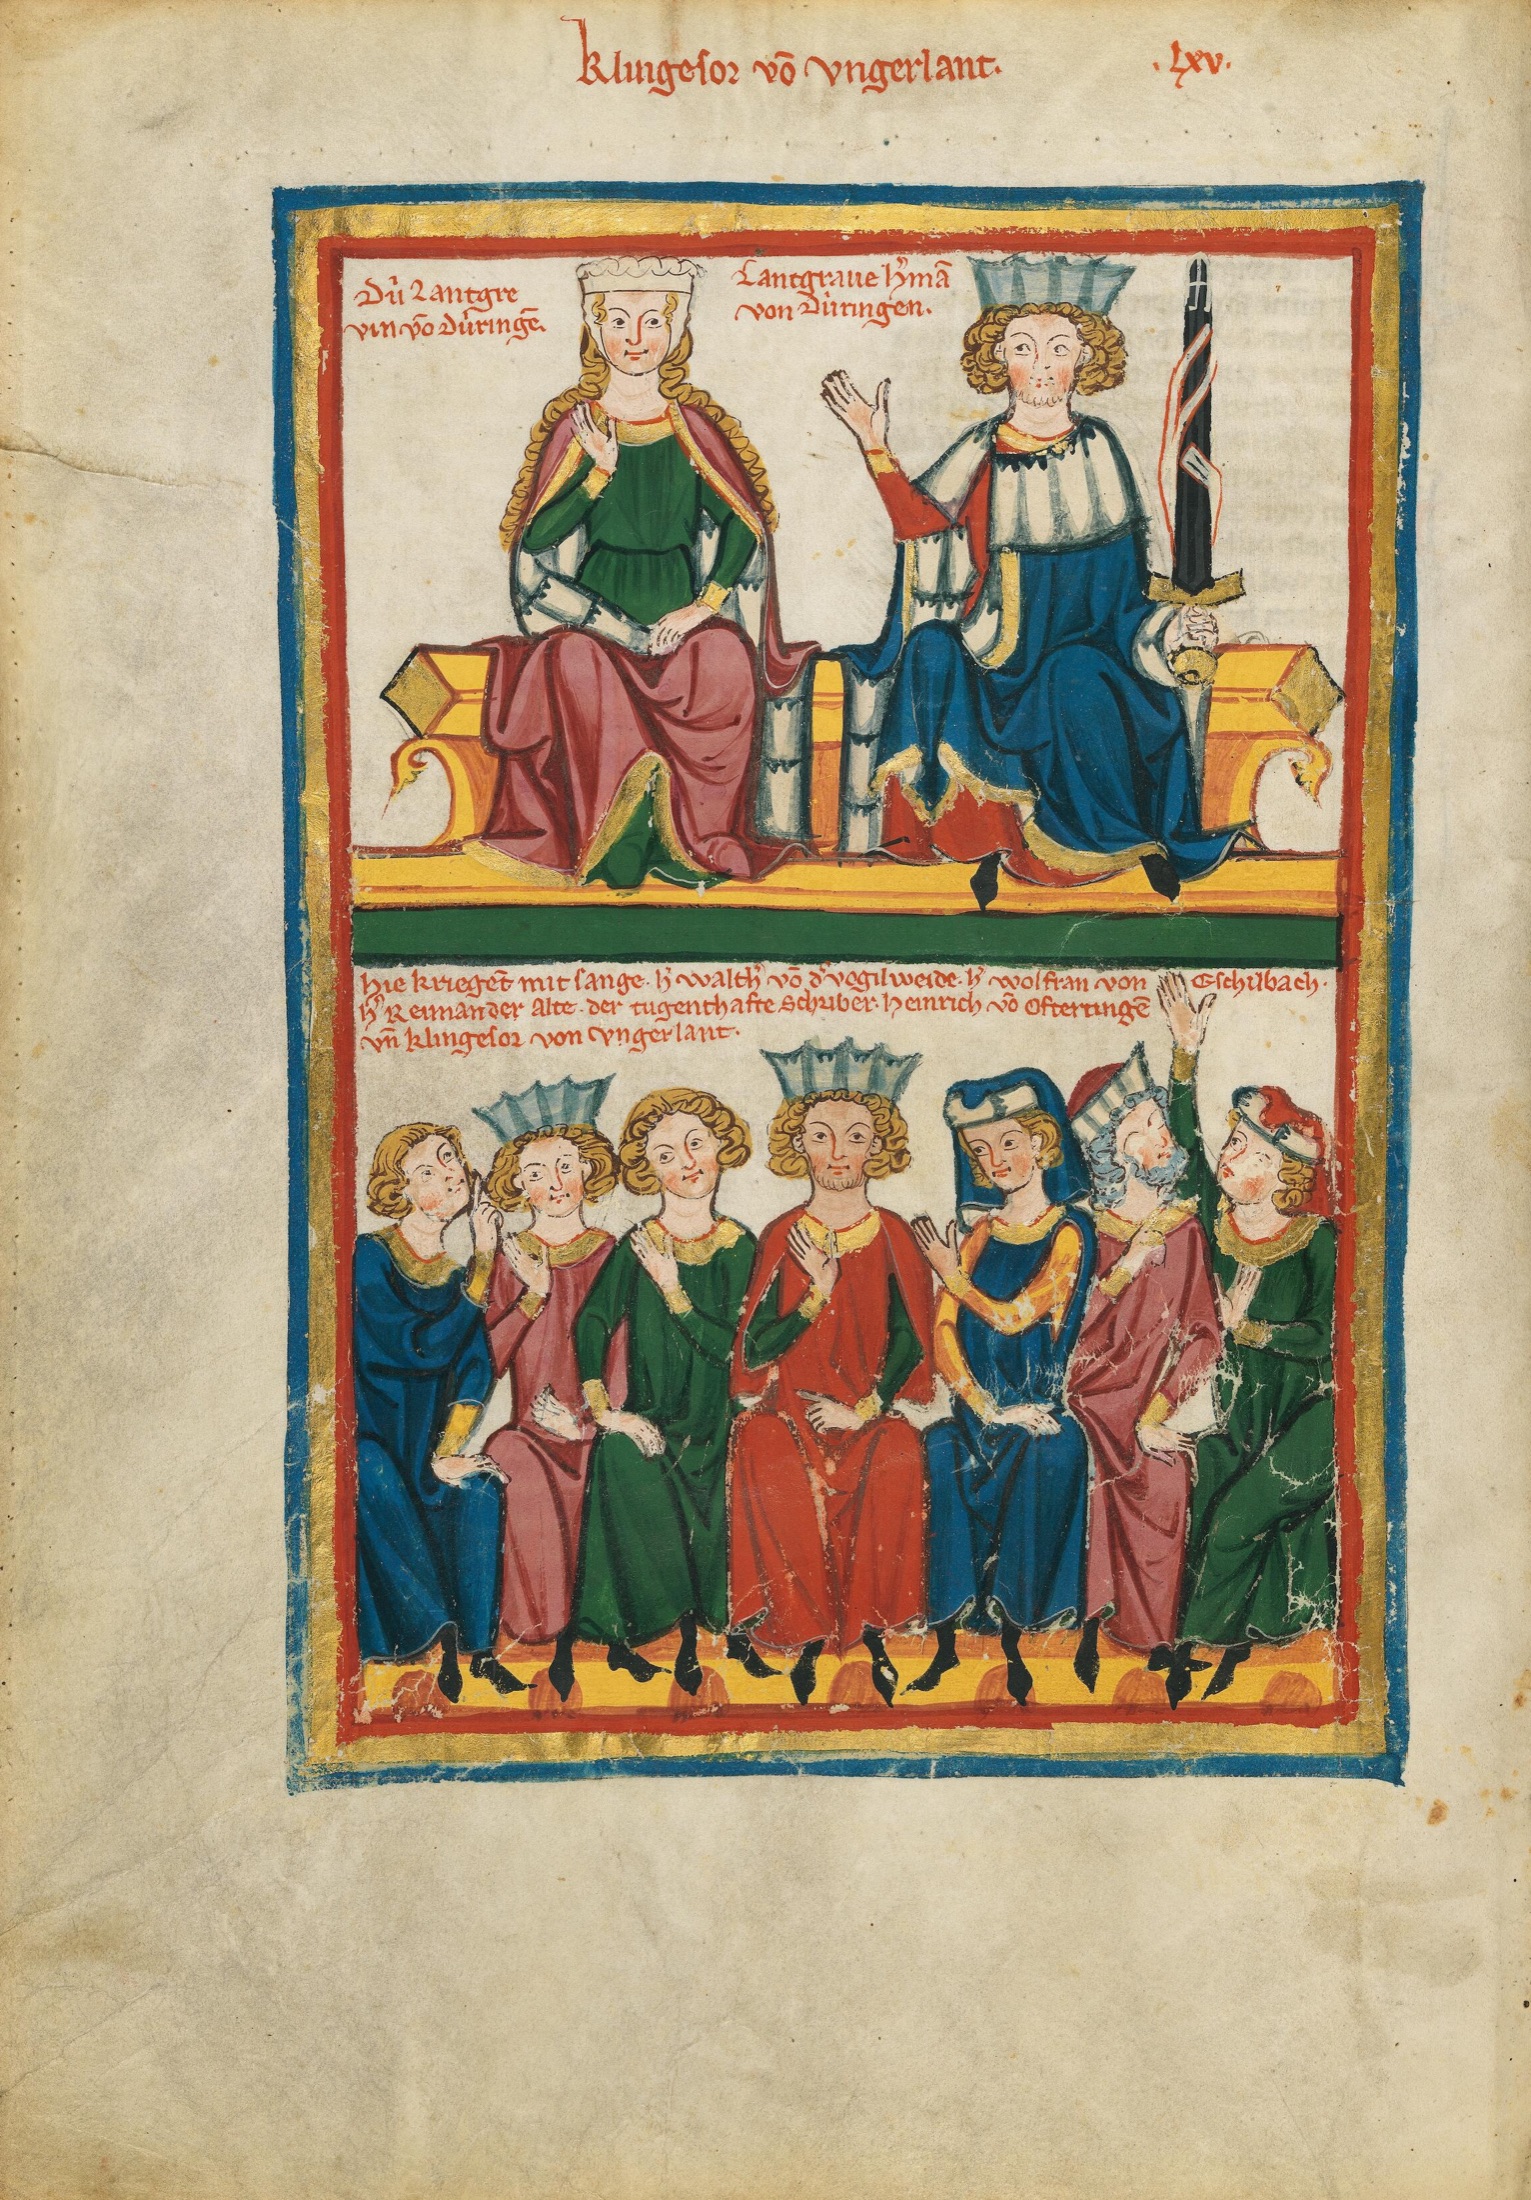 Klingesor võ vngerlant.
·lxv·
Dú̍ Lantgre
vin võ Dúringẽ.
Lantgraue h̾mã
von Dúringen.
Hie kriegẽt mit sange. h̾ walth̾ võ d̾ vogilweide. h̾ wolfran von Eschilbach.
h̾ Reinman der Alte. der tugenthafte Schriber. Heinrich võ Ofteringẽ
vñ klingesor von vngerlant.